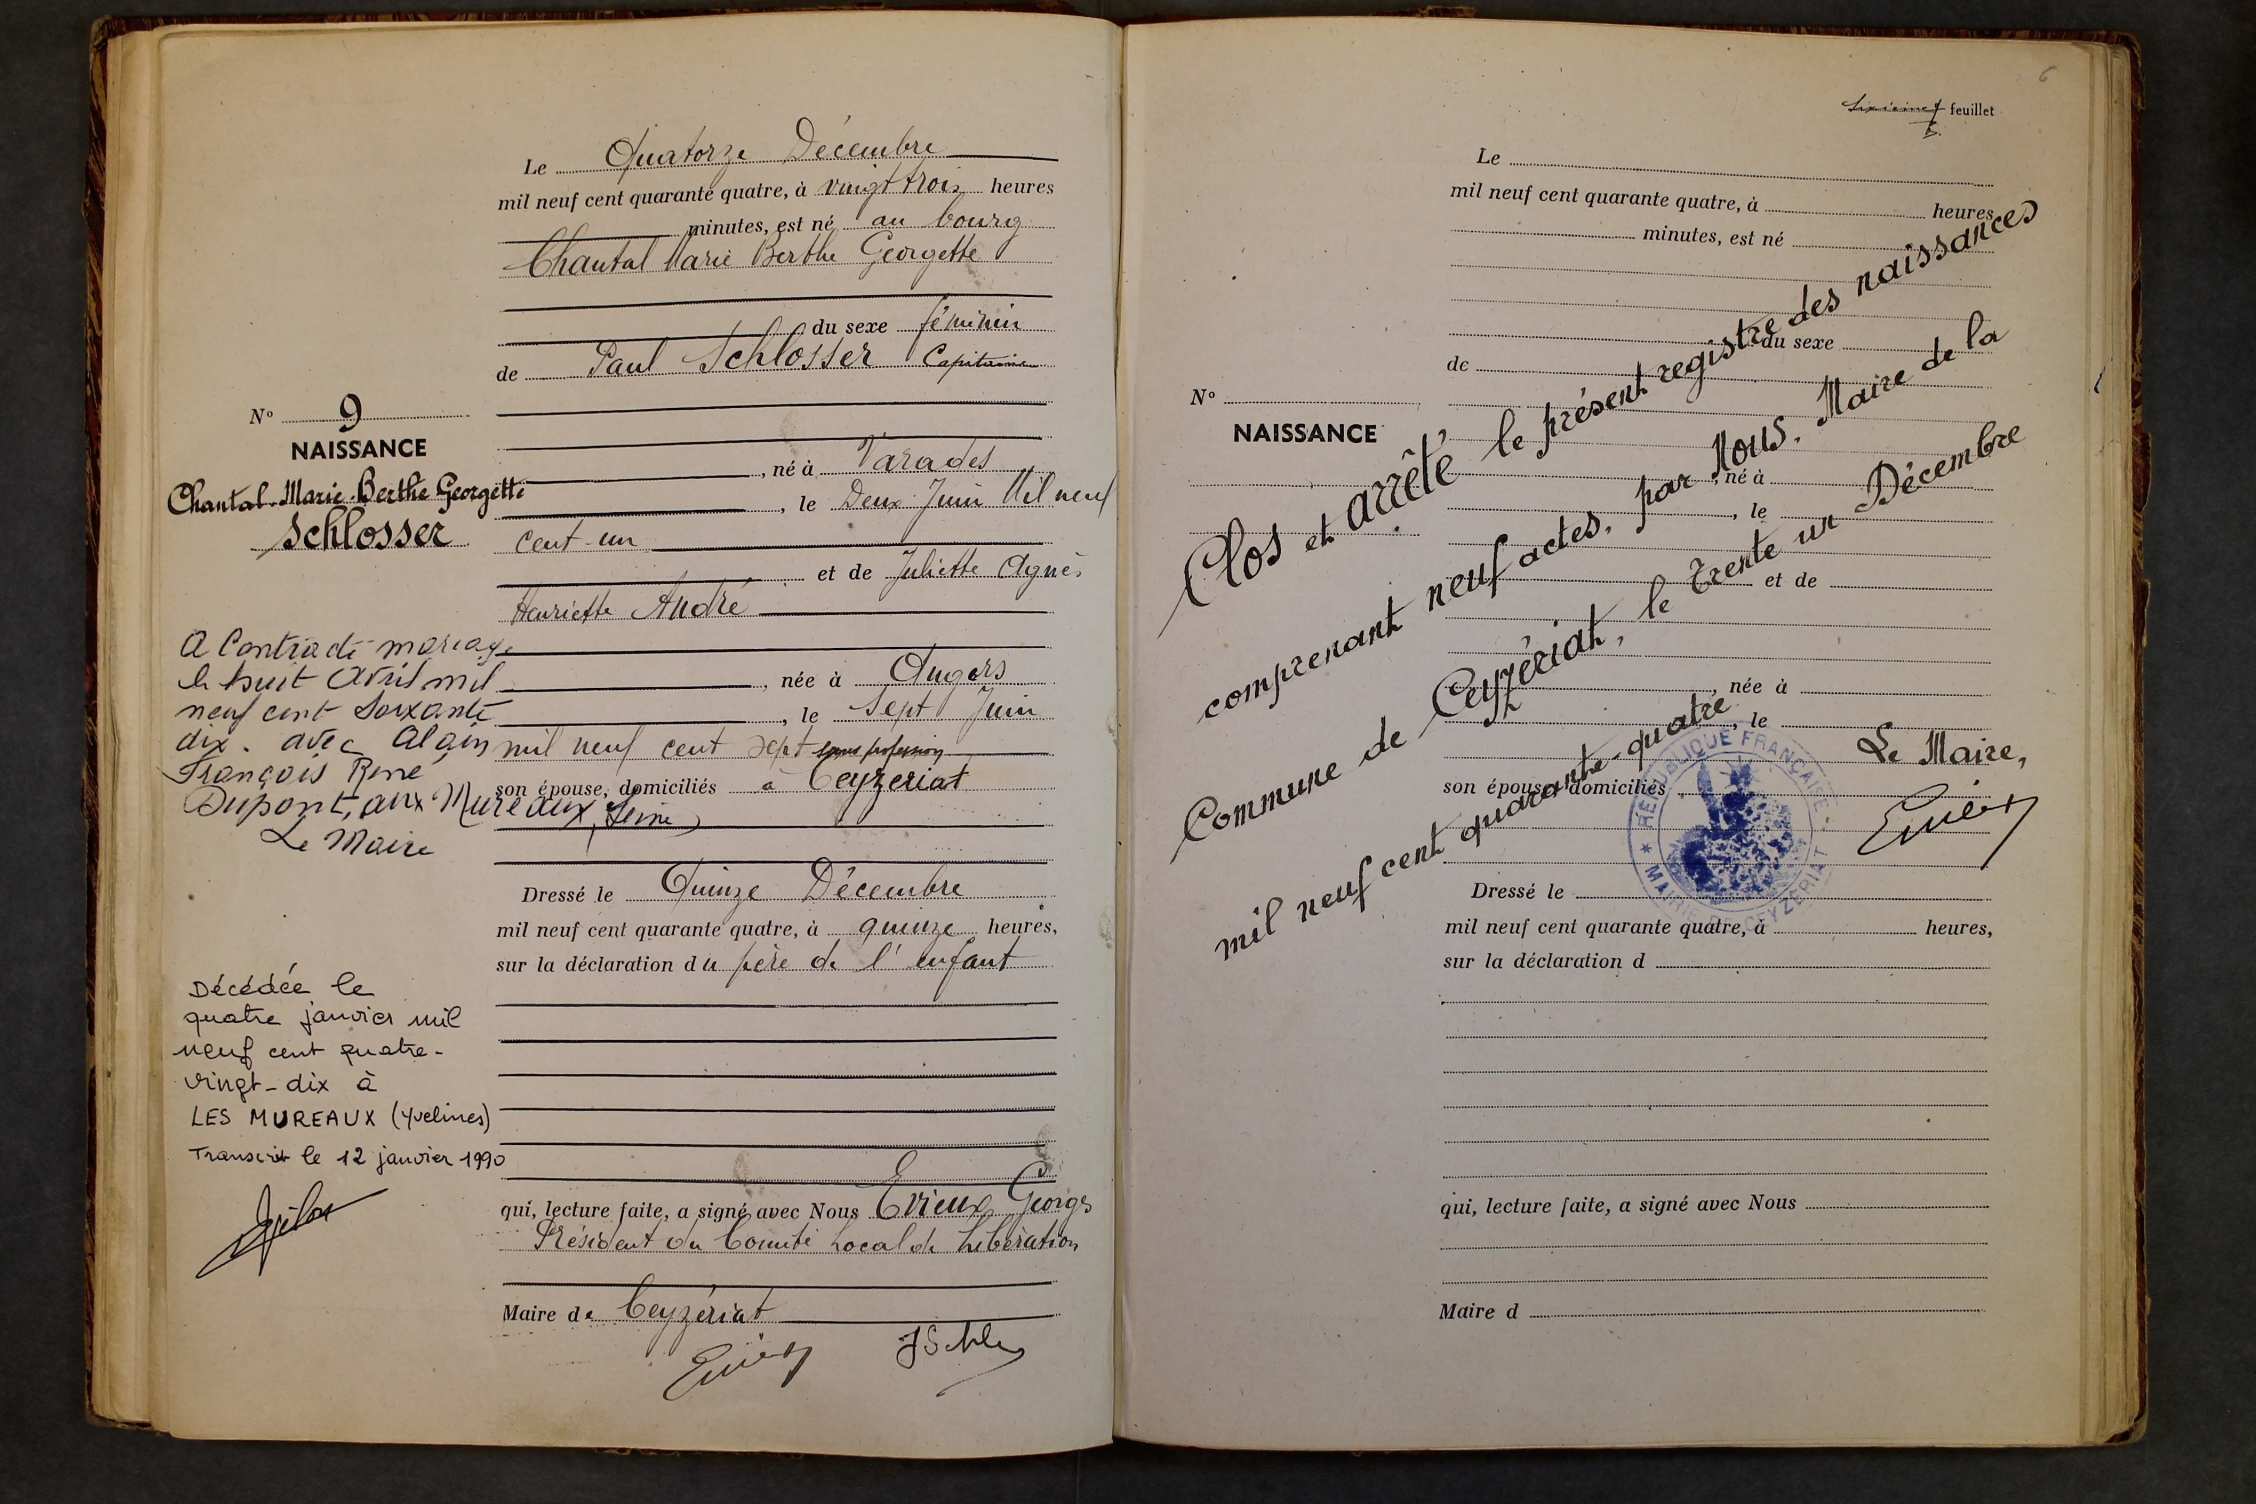 Le Quatorze Décembre
mil neuf cent quarante quatre, à vingt trois heures
minutes, est né au bourg
Chantal Marie Berthe Georgette
du sexe féminin
de Paul Schlosser Capitaine
né à Varades
, le Deux Juin Mil neuf
cent un
et de Juliette Agnès
Henriette André
, née à Angers
, le Sept Juin
mil neuf cent sept sans profession
son épouse, domiciliés à Ceyzeriat
Dressé le Quinze Décembre
mil neuf cent quarante quatre, à quinze heures,
sur la déclaration du père de l'enfant
qui, lecture faite, a signé avec Nous Evieux Georges
Président du Comité Local de Libération
Maire de Ceyzériat
N° 9
NAISSANCE
Chantal-Marie-Berthe Georgette
Schlosser
A Contracté mariage
le huit Avril mil
neuf cent soixante
dix. avec Alain
François René
Dupont, aux Mureaux,
Le Maire
Décédée le
quatre janvier mil
neuf cent quatre-
vingt-dix à
LES MUREAUX (Yvelines)
Transcrit le 12 janvier 1990
6
feuillet
Le
mil neuf cent quarante quatre, à heures
minutes, est né
du sexe
de
N°
NAISSANCE
, né à
, le
et de
, née à
, le
son épouse, domiciliés
Dressé le
mil neuf cent quarante quatre, à heures,
sur la déclaration d
qui, lecture faite, a signé avec Nous
Maire d
Clos et arrêté le présent registre des naissances
comprenant neuf actes, par Nous, Maire de la
Commune de Ceyzériat, le trente un Décembre
mil neuf cent quarante-quatre
Le Maire,
RÉPUBLIQUE FRANÇAISE
MAIRIE DE CEYZÉRIAT